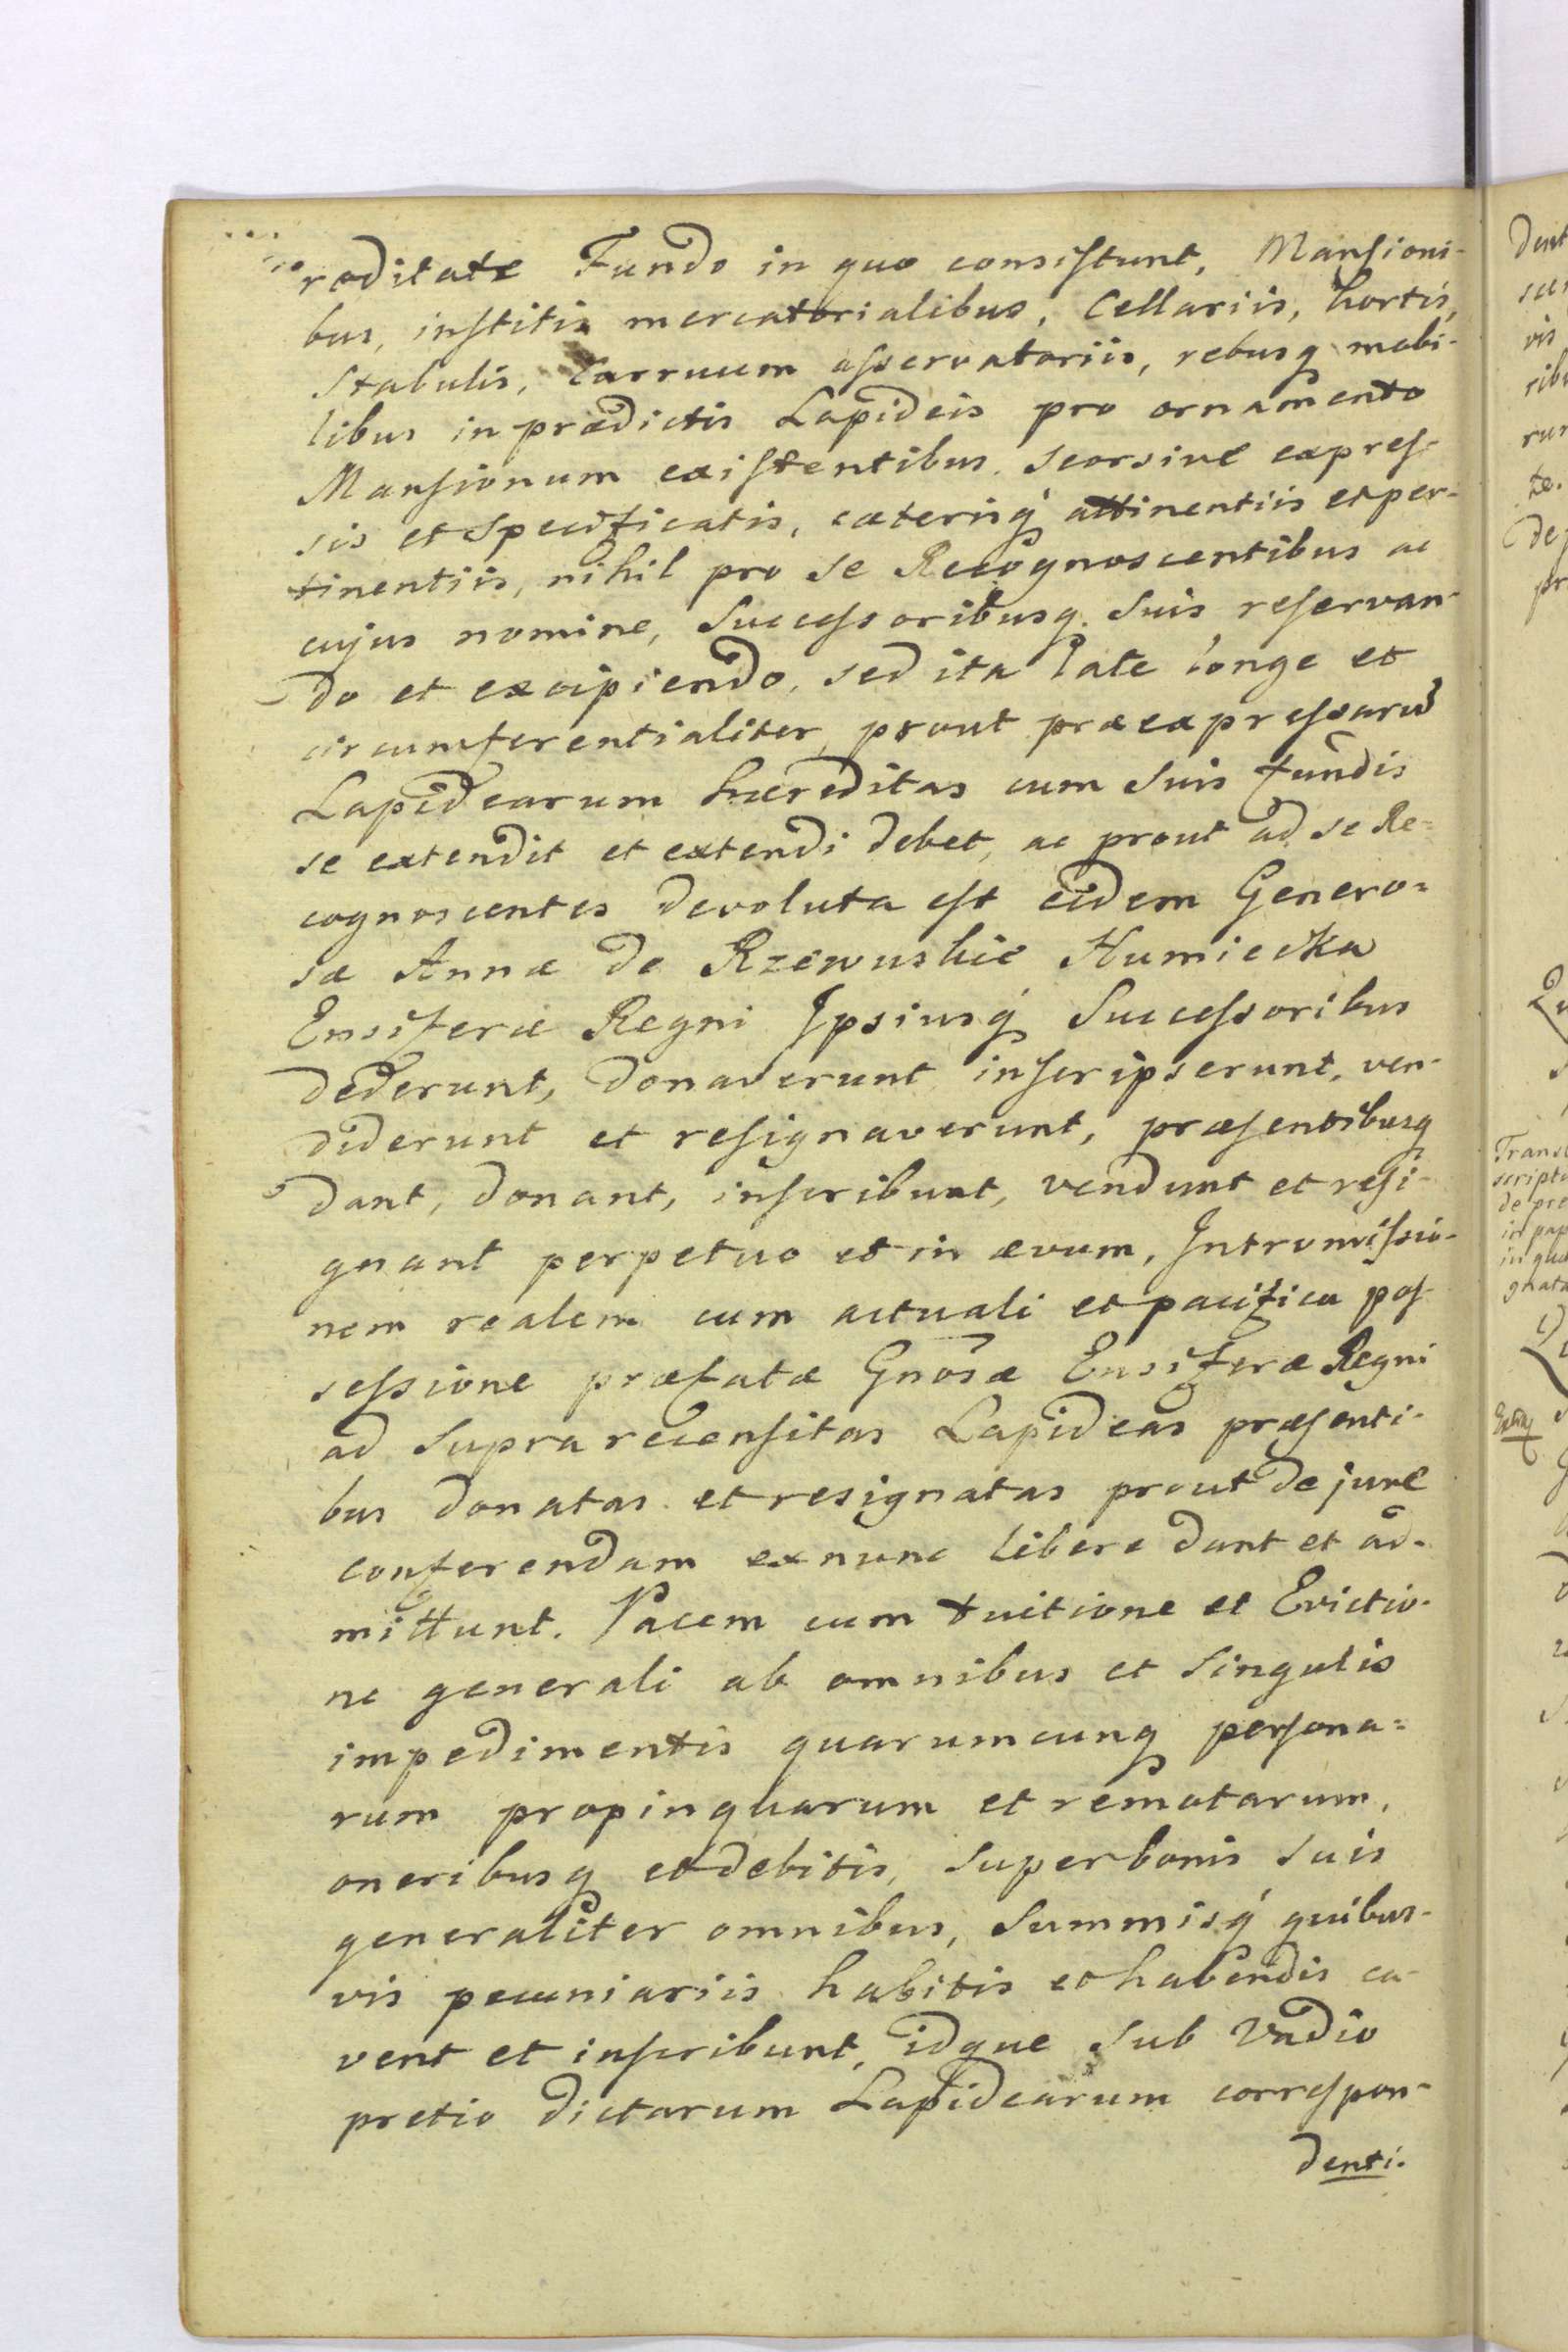 reditate Fundo in quo consistunt, Mansioni-
bus, institis mercatorialibus, Cellariis, hortis,
Stabulis, Carruum asservatoriis, rebusq mobi-
libus in prædictis Lapideis pro ornamento
Mansionum existentibus. seorsive expres-
sis et specificatis, cæterisq attinentiis et per-
tinentiis, nihil pro se Recognoscentibus ac
cujus nomine, Successoribusq. Suis reservan-
do et excipiendo, sed ita late longe et
circumferentialiter, prout præexpressarũ
Lapidearum hæreditas cum Suis fundis
se extendit et extendi debet, ac prout ad se Re=
cognoscentes devoluta est eidem Genero=
sæ Annæ de Rzewuskie Humiecka
Ensiferæ Regni Ipsiusq Successoribus
dederunt, donaverunt inscripserunt, ven-
diderunt et resignaverunt, præsentibusq
dant, donant, inscribunt, vendunt et resi-
gnant perpetuo et in ævum, Intromissio-
nem realem cum actuali et pacifica pos-
sessione præfatæ Gnosæ Ensiferæ Regni
ad Supra recensitas Lapideas præsenti-
bus donatas et resignatas prout de jure
conferendam ex nunc libere dant et ad-
mittunt. Pacem cum tuitione et Evictio-
ne generali ab omnibus et Singulis
impedimentis quarumcunq persona=
rum propinquarum et remotarum,
oneribusq et debitis, Super bonis suis
generaliter omnibus, Summisq quibus-
vis pecuniariis habitis et habendis ca-
vent et inscribunt, idque Sub Vadio
pretio dictarum Lapidearum correspon-
denti.
Trans
scripto
de pre
in pap
in qua
gnata